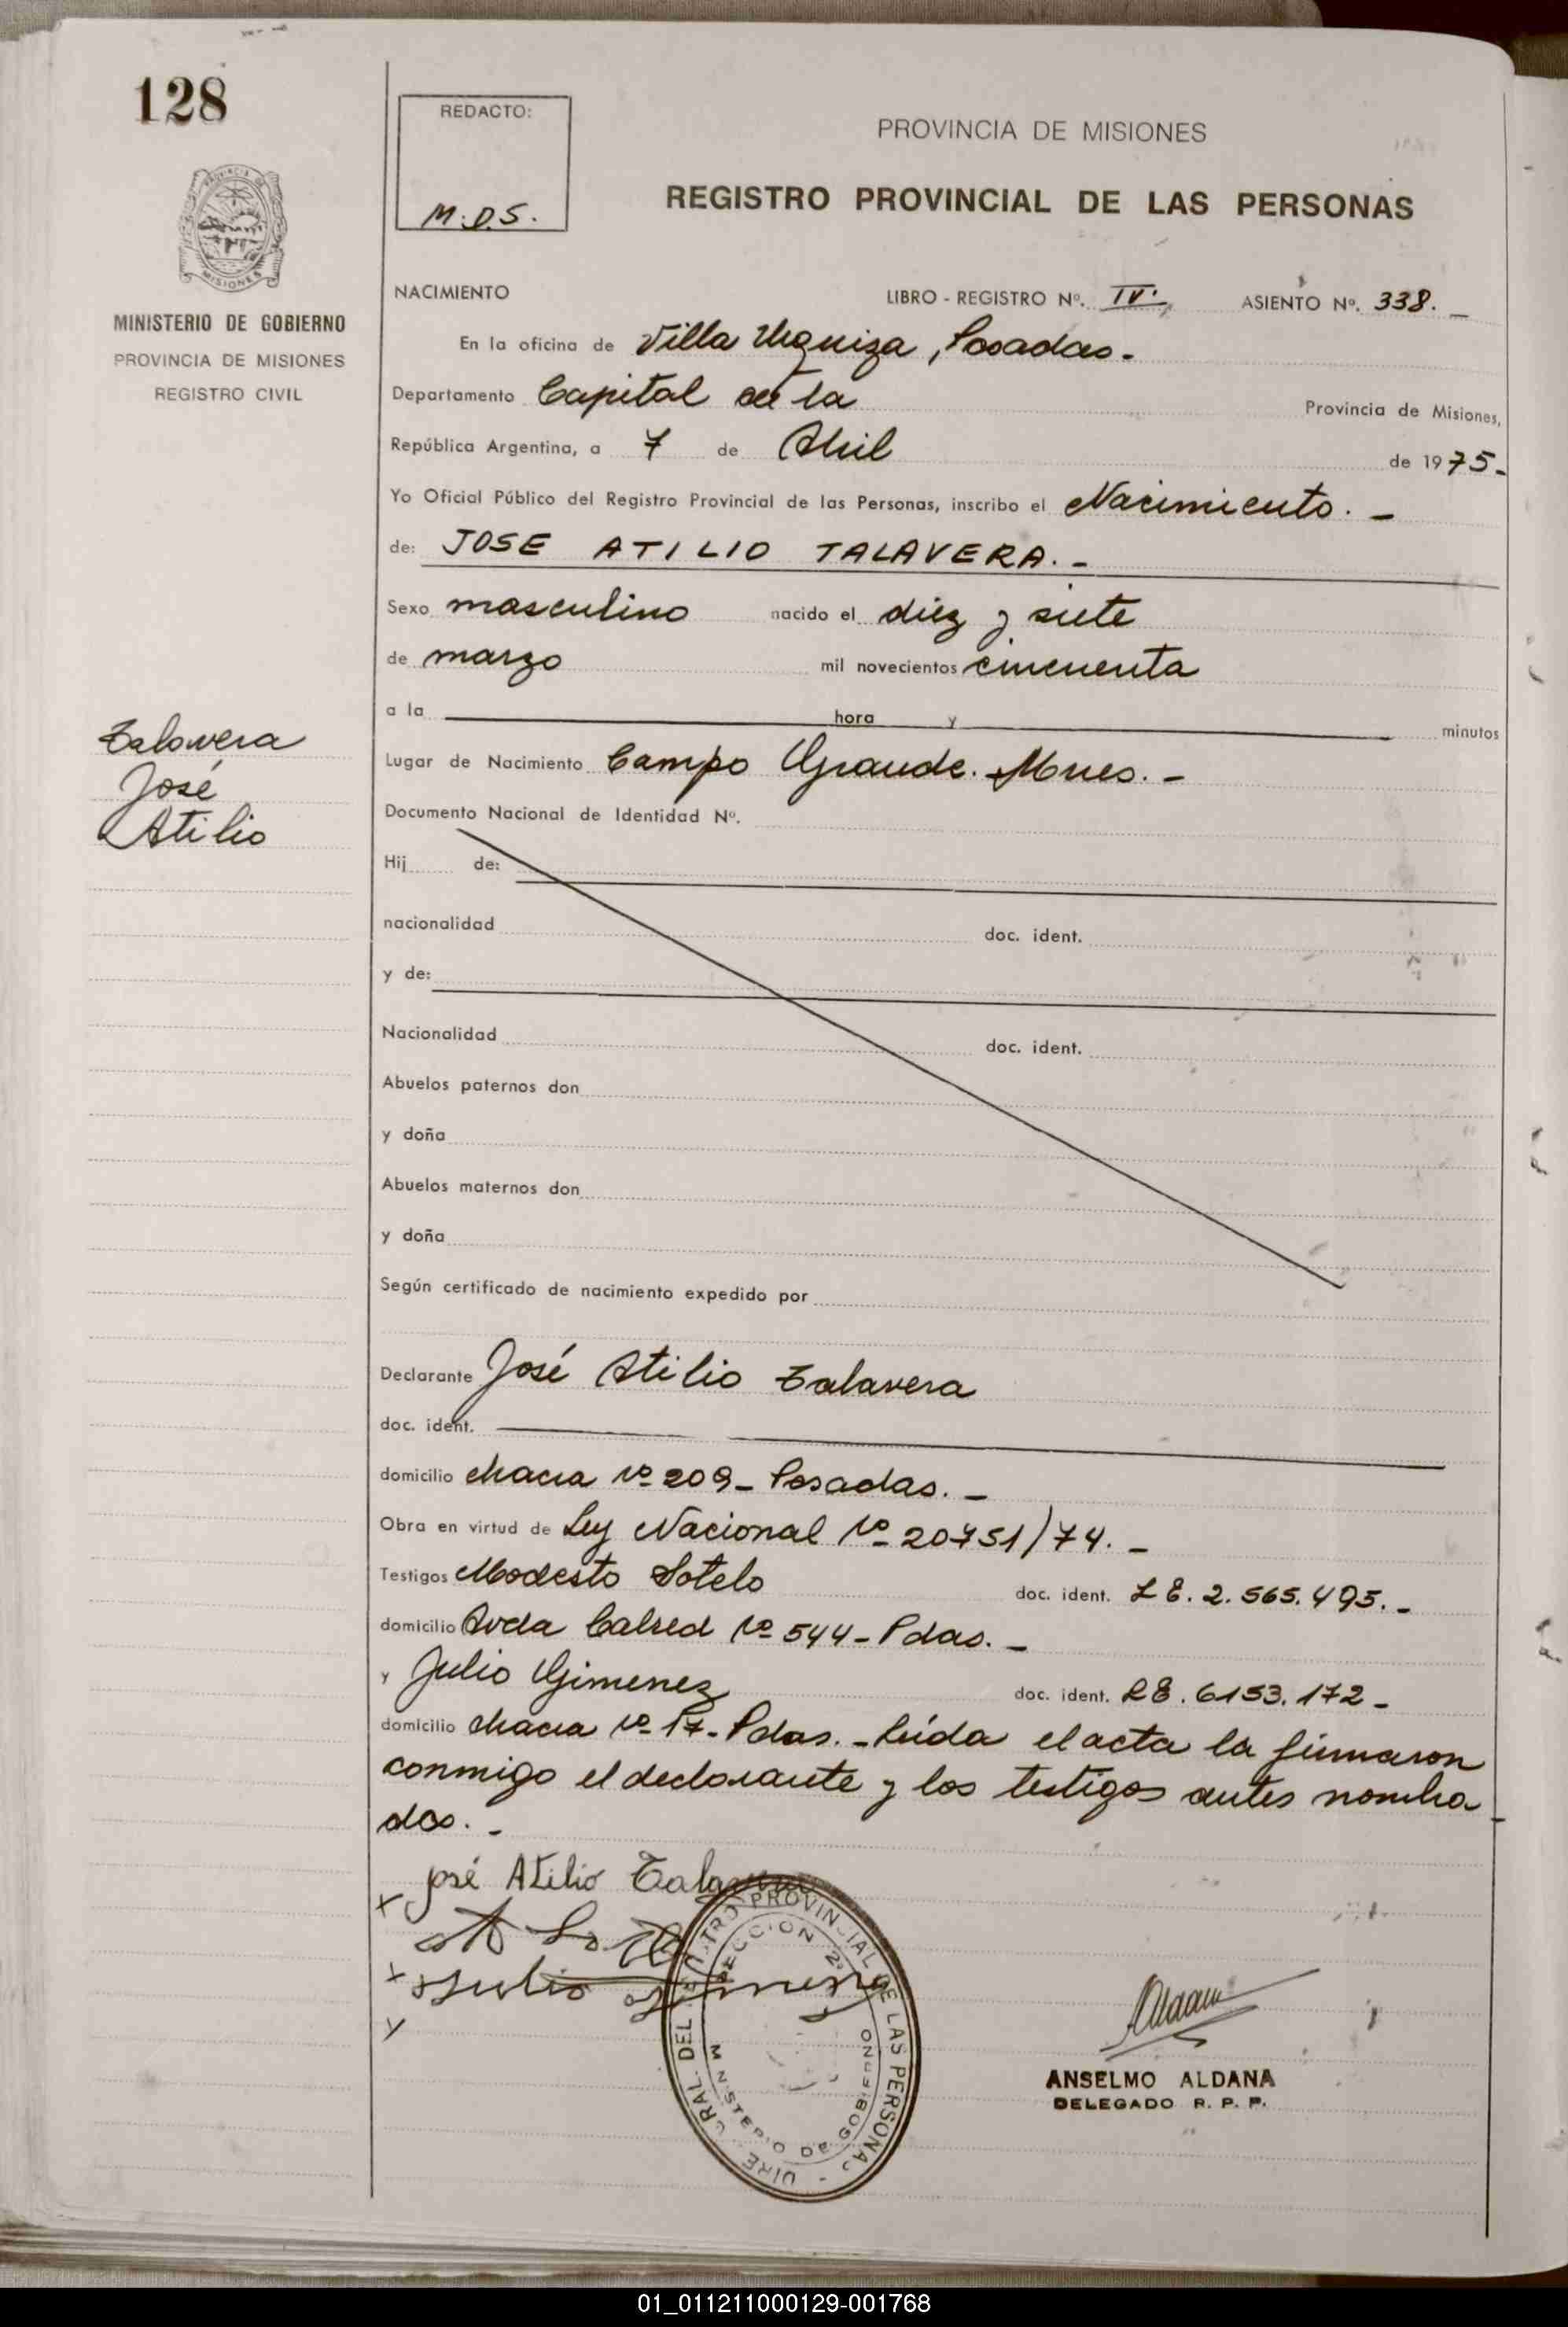 128
REDACTO:
M.D.S.
PROVINCIA DE MISIONES
REGISTRO PROVINCIAL DE LAS PERSONAS
MISIONES
MINISTERIO DE GOBIERNO
PROVINCIA DE MISIONES
REGISTRO CIVIL
NACIMIENTO LIBRO - REGISTRO Nº. IV. ASIENTO Nº. 338. _
En la oficina de Villa Urquiza, Posadas.-
Departamento Capital de la Provincia de Misiones,
República Argentina, a 7 de Abril de 1975-
Yo Oficial Público del Registro Provincial de las Personas, inscribo el Nacimiento. -
de: JOSE ATILIO TALAVERA. -
Sexo masculino nacido el diez y siete
de marzo mil novecientos cincuenta
a la hora y minutos
Talavera
José
Atilio
Lugar de Nacimiento Campo Grande. Mnes. -
Documento Nacional de Identidad Nº.
Hij de:
nacionalidad doc. ident.
y de:
Nacionalidad doc. ident.
Abuelos paternos don
y doña
Abuelos maternos don
y doña
Según certificado de nacimiento expedido por
Declarante José Atilio Talavera
doc. ident.
domicilio chacra Nº 209 - Posadas. -
Obra en virtud de Ley Nacional Nº 20751/74. -
Testigos Modesto Sotelo doc. ident. L E. 2.565.495. -
domicilio Avda Calred Nº 544 - Pdas. -
y Julio Gimenez doc. ident. LE. 6153.172 -
domicilio chacra Nº 17 - Pdas. - leída el acta la firmaron
conmigo el declarante y los testigos antes nombra
dos. -
x José Atilio Talavera
x Julio Gimenez
ANSELMO ALDANA
DELEGADO R. P. P.
PROVINCIAL DE LAS PERSONAS
SECCION 2ª
MINISTERIO DE GOBIERNO
01_011211000129-001768